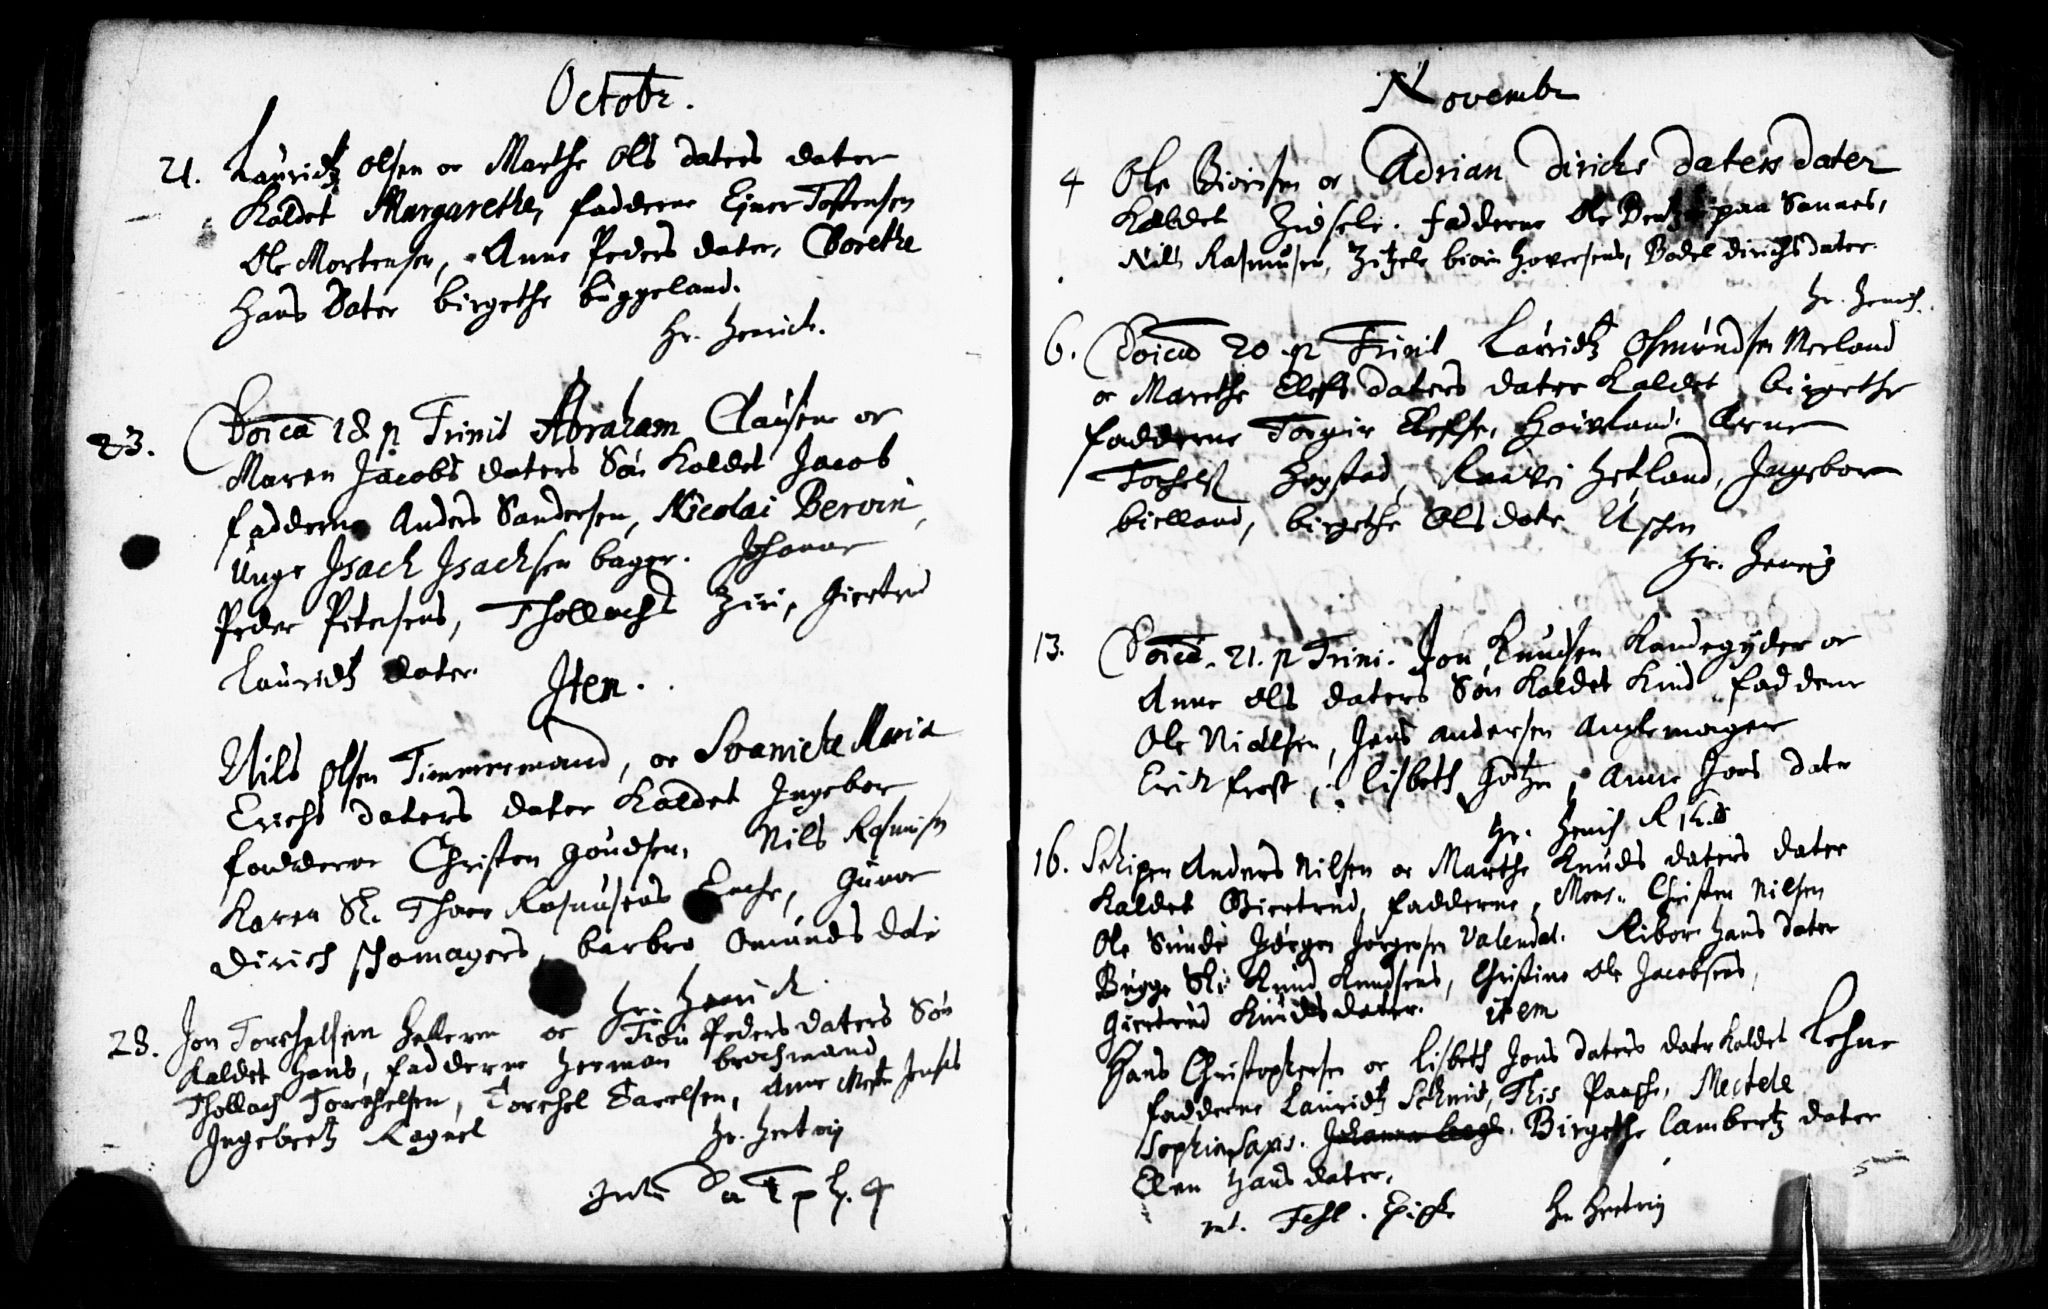 Octobr.
21. Lauridtz Olsen oc Marthe Ols daters dater
Kaldet Margarethe, fadderne Ejner Tostensen
Ole Mortensen, Anne Peders dater, Dorethe
Hans Dater birgethe byggeland.
Hr. Henrich.
23. Doica 18 p Trinit Abraham Clausens oc
Maren Jacobs daters Søn Kaldet Jacob
fadderne Anders Sandersen, Nicolai Bervin,
Unge Isach Isachsen bager. Johanne
Peder Petersens, Thollachs Ziri, Giertrud
Lauridtz dater.
Item.
Nils Olsen Timmermand, oc Svanicke Maria
Erichs daters dater Kaldet Ingebor
fadderne Christen Goudsen, Nils Rasmusen
Karen Sl. Thore Rasmusens Enche, Gunnor
Dirich schomagers, barbro Omunds dater
Hr. Henrich
28. Jon Torchelsen Hellern oc Siri Peders daters Søn
Kaldet Hans, fadderne Herman brochmand
Thollach Torchelsen, Torchel Carelsen, Anne Jenses
Ingebretz Ragnel
Hr. Hertvig
Novembr
4 Ole Biørnsen oc Adrian Dirichs daters dater
Kaldet Zidsele. fadderne Ole paa Sannes,
Nils Rasmusen, Zitzele biørn Hoversens, Bodel dirichs dater.
Hr. Henrich.
6. Doica 20 p Trinit Lauridtz Osmundsen Merland
oc Marethe Elefs daters dater Kaldet birgethe
fadderne Torgir Elefsen, Hoieland. Arne
Torchels Hogstad, Hetland, Ingebor
bielland, birgethe Olsdater
Hr. Henrich
13. Doica. 21. p Trini. Jon Knudsen Kandegyder oc
Anne Ols daters Søn Kaldet Knud fadderne
Ole Nielsen, Jens Andersen
Erich frost, Lisbeth Götzen, Anne Jons dater
Hr. Henrich
16. Schipper Anders Nilsen oc Marthe Knuds daters dater
Kaldet Giertrud, fadderne, Mons. Christen Nilsen
Ole Sunde Jørgen Jørgensen Valendal. Ribor Hans dater
Bugge Sl. Knud Knudsens, Christine Ole Jacobsens,
Giertrud Knuds dater. item
Hans Christophersen oc Lisbeth Jons daters dater Kaldet Lehne
fadderne Lauridtz Schmid, This Paasche, Mectele
Sophia Saxis. Birgethe Lambertz dater
Elen Hans dater.
Hr Hertvig